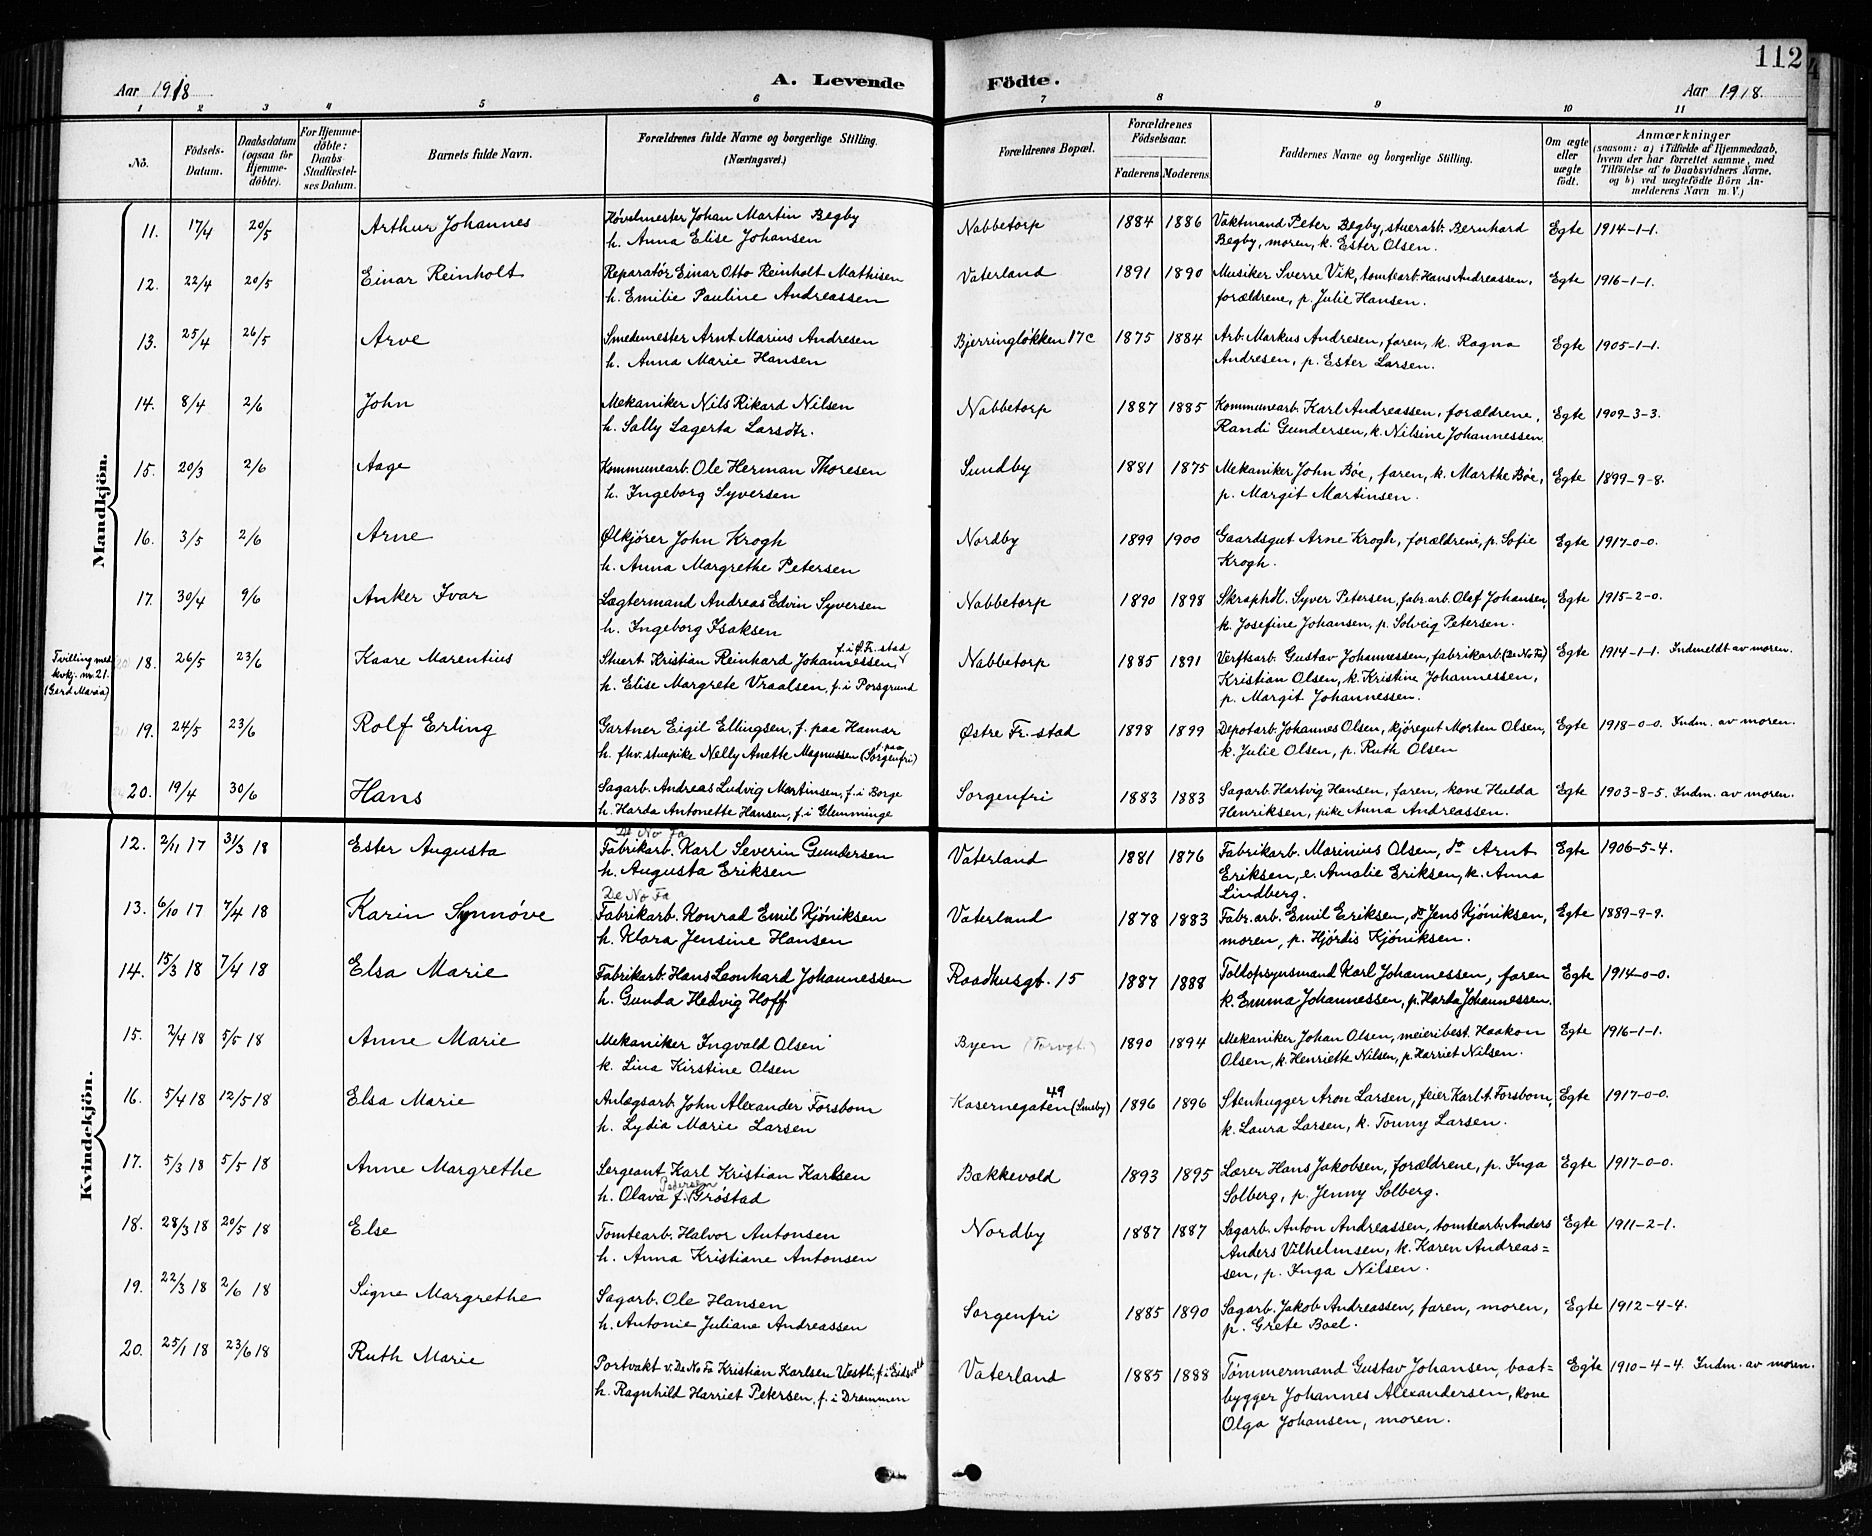 112
Aar 1918
A. Levende
Födte.
Aar 1918.
1 2 3 4 5 6 7 8 9 10 11
No.
Födsels-Datum.
Daabsdatum (ogsaa for Hjemmedöbte).
For Hjemmedöbte: Daabs Stadfestelses Datum.
Barnets fulde Navn.
Forældrenes fulde Navne og borgerlige Stilling. (Næringsvei.)
Forældrenes Bopæl.
Forældrenes Födselsaar.
Faderens Moderens
Faddernes Navne og borgerlige Stilling.
Om ægte eller uægte födt.
Anmærkninger
(saasom: a) i Tilfælde af Hjemmedaab, hvem der har forrettet samme, med Tilföielse af to Daabsvidners Navne, og b) ved uægtefödte Börn Anmelderens Navn m. V.)
Mandkjön.
11. 17/4 20/5 Arthur Johannes Høvelmester Johan Martin Begby Nabbetorp 1884 1886 Vaktmand Peter Begby, stuerarb. Bernhard Egte 1914-1-1.
h. Anna Elise Johansen Begby, moren, k. Ester Olsen.
12. 22/4 20/5 Einar Reinholt Reparatør Einar Otto Reinholt Mathisen Vaterland 1891 1890 Musiker Sverre Vik, tomtearb. Hans Andreassen, Egte 1916-1-1.
h. Emilie Pauline Andreassen forældrene, p. Julie Hansen.
13. 25/4 26/5 Arve Smedemester Arnt Marius Andresen Bjerringløkken 17c 1875 1884 Arb. Markus Andresen, faren, k. Ragna Egte 1905-1-1.
h. Anna Marie Hansen Andresen, p. Ester Larsen.
14. 8/4 2/6 John Mekaniker Nils Rikard Nilsen Nabbetorp 1887 1885 Kommunearb. Karl Andreassen, forældrene, Egte 1909-3-3.
h. Sally Lagerta Larsdtr. Randi Gundersen, k. Nilsine Johannessen.
15. 20/3 2/6 Aage Kommunearb. Ole Herman Thoresen Sundby 1881 1875 Mekaniker John Bøe, faren, k. Marthe Bøe, Egte 1899-9-8.
h. Ingeborg Syversen p. Margit Martinsen.
16. 3/5 2/6 Arne Ølkjører John Krogh Nordby 1899 1900 Gaardsgut Arne Krogh, forældrene, p. Sofie Egte 1917-0-0.
h. Anna Margrethe Petersen Krogh.
17. 30/4 9/6 Anker Ivar Lægtermand Andreas Edvin Syversen Nabbetorp 1890 1898 Skraphdl. Syver Petersen, fabr. arb. Olaf Johansen, Egte 1915-2-0.
h. Ingeborg Isaksen k. Josefine Johansen, p. Solveig Petersen.
Tvilling med kvkj. nr. 21. (Gerd Maria)
f. i Ø. Fr. stad
18. 26/5 23/6 Kaare Marentius Stuert Kristian Reinhard Johannessen Nabbetorp 1885 1891 Verftsarb. Gustav Johannessen, fabrikarb. (De No Fa) Egte 1914-1-1. Indmeldt av moren.
h. Elise Margrete Vraalsen, f. i Porsgrund Kristian Olsen, k. Kristine Johannessen,
p. Margit Johannessen.
19. 24/5 23/6 Rolf Erling Gartner Eigil Ellingsen, f. paa Hamar Østre Fr.-stad 1898 1899 Depotarb. Johannes Olsen, kjøregut Morten Olsen, Egte 1918-0-0. Indm. av moren.
h. fhv. stuepike Nelly Anette Magnussen (f. paa Sorgenfri) k. Julie Olsen, p. Ruth Olsen
20. 19/4 30/6 Hans Sagarb. Andreas Ludvig Martinsen, f. i Borge Sorgenfri 1883 1883 Sagarb. Hartvig Hansen, faren, kone Hulda Egte 1903-8-5. Indm. av moren.
h. Harda Antonette Hansen, f. i Glemminge Henriksen, pike Anna Andreassen.
Kvindekjön.
De No Fa
12. 2/11 17 31/3 18 Ester Augusta Fabrikarb. Karl Severin Gundersen Vaterland 1881 1876 Fabrikarb. Marinius Olsen, do Arnt Egte 1906-5-4.
h. Augusta Eriksen Eriksen, e. Amalie Eriksen, k. Anna
Lindberg.
De No Fa
13. 6/10 17 7/4 18 Karin Synnøve Fabrikarb. Konrad Emil Kjøniksen Vaterland 1878 1883 Fabr. arb. Emil Eriksen, do Jens Kjøniksen, Egte 1889-9-9.
h. Klara Jensine Hansen moren, p. Hjördis Kjøniksen.
14. 15/3 18 7/4 18 Elsa Marie Fabrikarb. Hans Leonhard Johannessen Raadhusgt. 15 1887 1888 Toldopsynsmand Karl Johannessen, faren Egte 1914-0-0.
h. Gunda Hedvig Hoff k. Emma Johannessen, p. Harda Johannessen.
15. 2/4 18 5/5 18 Anne Marie Mekaniker Ingvald Olsen Byen (Torvgt.) 1890 1894 Mekaniker Johan Olsen, meieribest. Haakon Egte 1916-1-1.
k. Lina Kirstine Olsen Olsen, k. Henriette Nilsen, p. Harriet Nilsen.
16. 5/4 18 12/5 18 Elsa Marie Anlægsarb. John Alexander Forsbom Kasernegaten 49 (Smeby) 1896 1896 Stenhugger Aron Larsen, feier Karl A. Forsbom, Egte 1917-0-0.
h. Lydia Marie Larsen k. Laura Larsen, k. Tonny Larsen.
17. 5/3 18 5/5 18 Anne Margrethe Sergeant Karl Kristian Karlsen Bækkevold 1893 1895 Lærer Hans Jakobsen, forældrene, p. Inga Egte 1917-0-0.
h. Olava f. Pedersen Grøstad Solberg, p. Jenny Solberg.
18. 28/3 18 20/5 18 Else Tomtearb. Halvor Antonsen Nordby 1887 1887 Sagarb. Anton Andreassen, tomtearb. Anders Egte 1911-2-1.
h. Anna Kristiane Antonsen Anders Vilhelmsen, k. Karen Andreas=
sen, p. Inga Nilsen.
19. 22/3 18 2/6 18 Signe Margrethe Sagarb. Ole Hansen Sorgenfri 1885 1890 Sagarb. Jakob Andreassen, faren, moren, Egte 1912-4-4.
h. Antonie Juliane Andreassen p. Grete Boel.
20. 25/1 18 23/6 18 Ruth Marie Portvakt v. De No Fa Kristian Karlsen Vestli, f. i Eidsvold Vaterland 1885 1888 Tømmermand Gustav Johansen, baat= Egte 1910-4-4. Indm. av moren.
h. Ragnhild Harriet Petersen, f. i Drammen bygger Johannes Alexandersen, kone
Olga Johansen, moren.